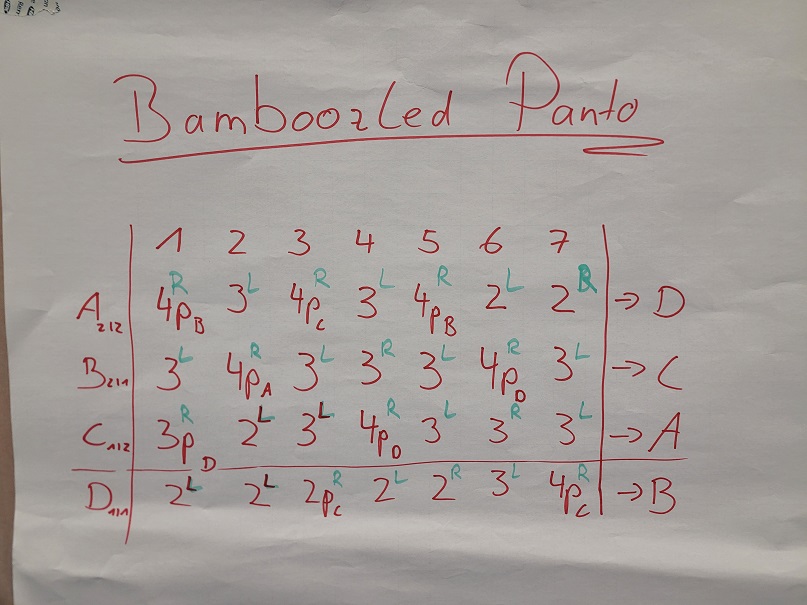 Bamboozled Panto
1 2 3 4 5 6 7
A₂₁₂ 4p_B^R 3^L 4p_C^R 3^L 4p_B^R 2^L 2^R → D
B₂₁₁ 3^L 4p_A^R 3^L 3^R 3^L 4p_D^R 3^L → C
C₁₁₂ 3p_D^R 2^L 3^L 4p_D^R 3^L 3^R 3^L → A
D₁₁₁ 2^L 2^L 2p_C^R 2^L 2^R 3^L 4p_C^R → B